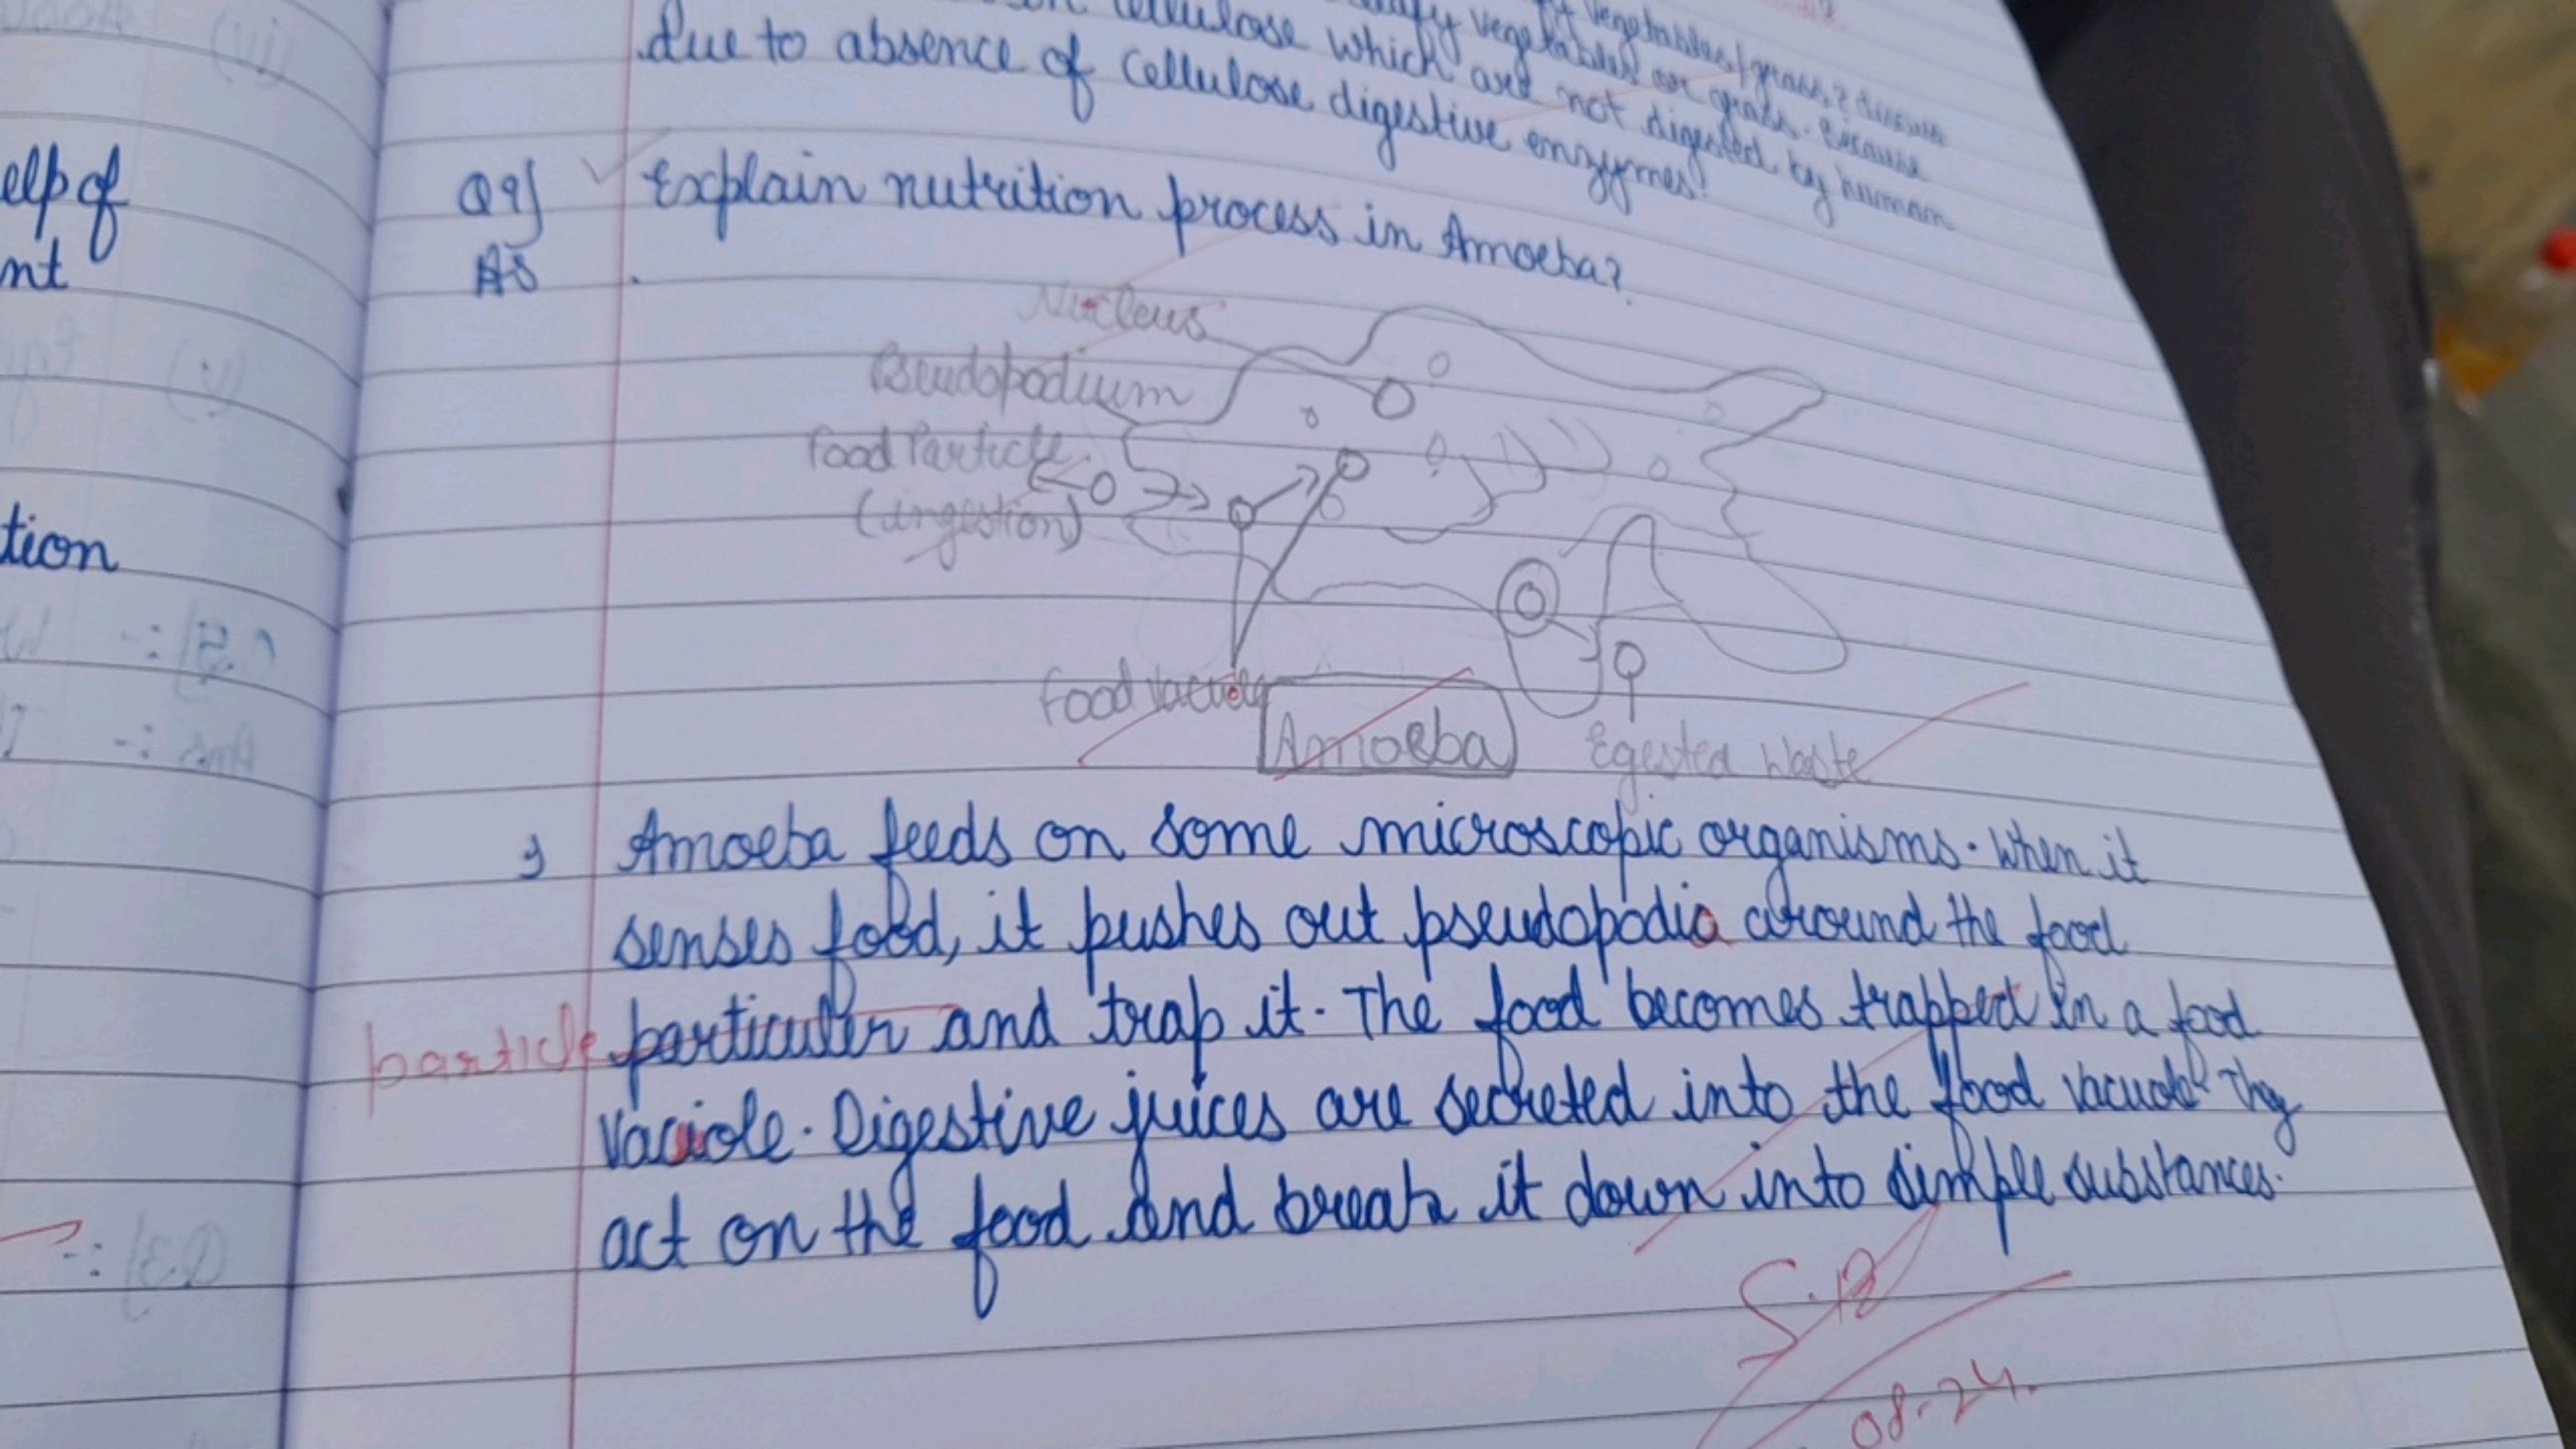 elp of
nt
tion
vegetables/grass? discuss
vegetables or grass. Because
cellulose which are not digested by human
due to absence of cellulose digestive enzymes.
Q9] Explain nutrition process in Amoeba?
AS
Nucleus
Pseudopodium
Food Particle
(ingestion)
Food vacuole
Amoeba
Egested Waste
Amoeba feeds on some microscopic organisms. When it
senses food, it pushes out pseudopodia around the food
particle particuler and trap it. The food becomes trapped in a food
vacuole. Digestive juices are secreted into the food vacuole. They
act on the food and break it down into simple substances.
08-24.